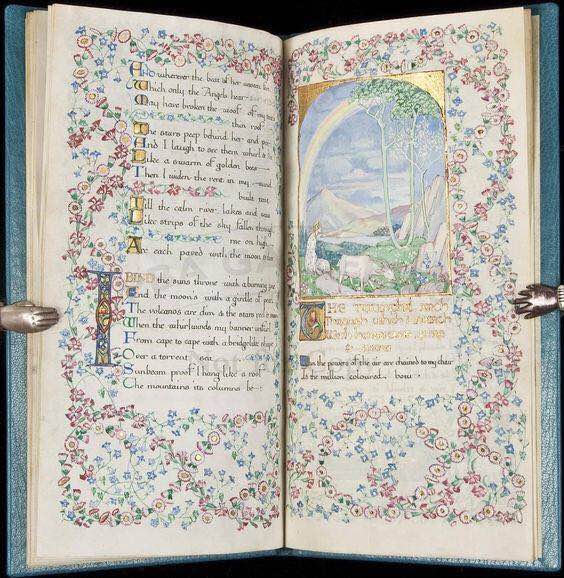 And wherever the beat of her unseen
Which only the Angels hear
May have broken the woof of my
thin roof
The stars peep behind her and
And I laugh to see them whirl &
Like a swarm of golden bees
Then I widen the rent in my wind
built tent
Till the calm rivers lakes and seas
Like strips of the sky fallen through
me on high
Are each paved with the moon & these
I BIND the suns throne with a burning zone
And the moons with a girdle of pearl
The volcanos are dim & the stars reel & swim
When the whirlwinds my banner unfurl
From cape to cape with a bridgelike shape
Over a torrent sea
Sunbeam proof I hang like a roof
The mountains its columns be
The triumphal arch
Through which I march
With hurricane
& snow
When the powers of the air are chained to my chair
Is the million coloured bow